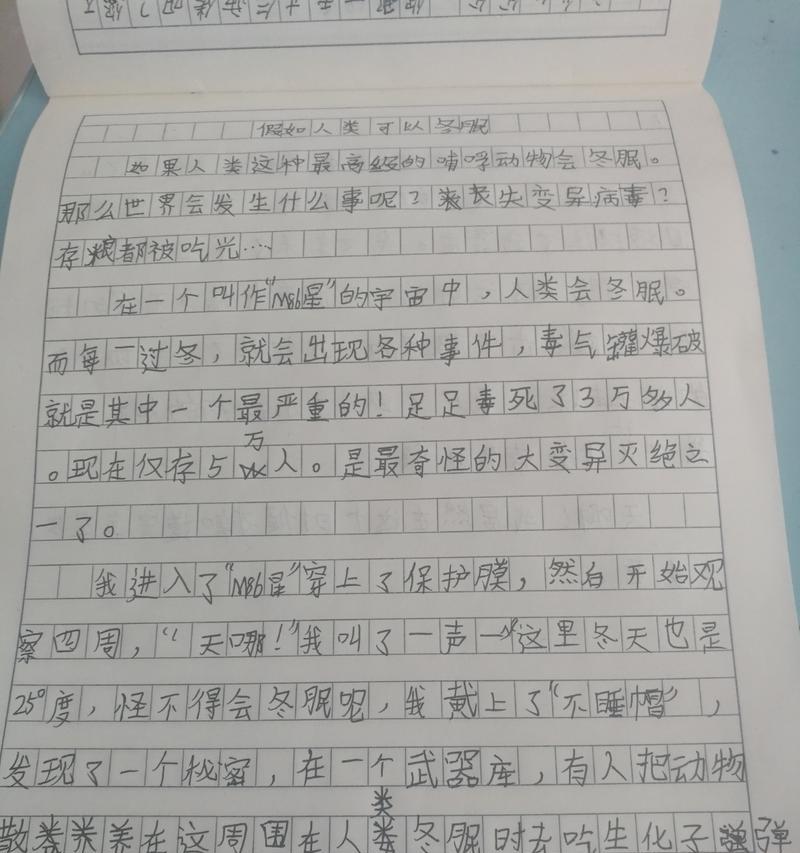 假如人类可以冬眠
如果人类这种最高级的哺呼动物会冬眠。
那么世界会发生什么事呢？丧失变异病毒？
存粮都被吃光…
在一个叫作“M86星”的宇宙中，人类会冬眠。
而每一过冬，就会出现各种事件，毒气罐爆破
就是其中一个最严重的！足足毒死了3万多人
。现在仅存5万人。是最奇怪的大变异灭绝之
一了。
我进入了“M86星”穿上了保护膜，然后开始观
察四周，“天哪！”我叫了一声一“这里冬天也是
25°度，怪不得会冬眠呢，我戴上了“不睡帽”，
发现了一个秘密，在一个武器库，有人把动物
养在这周围在人类冬眠时去吃生化子弹